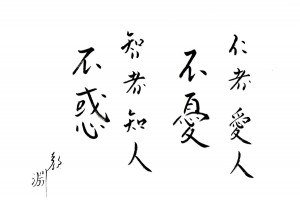 仁者愛人
不憂
智者知人
不惑